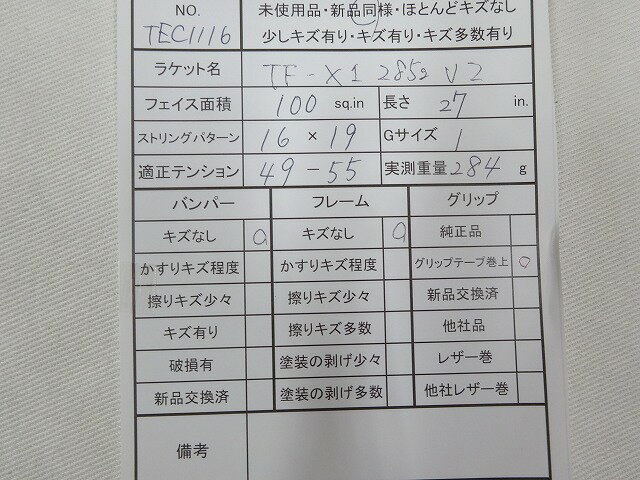 NO. 未使用品・新品同様・ほとんどキズなし
TEC1116 少しキズ有り・キズ有り・キズ多数有り
ラケット名 TF-X1 285g V2
フェイス面積 100 sq.in 長さ 27 in.
ストリングパターン 16 × 19 Gサイズ 1
適正テンション 49-55 実測重量 284 g
バンパー フレーム グリップ
キズなし ○ キズなし ○ 純正品
かすりキズ程度 かすりキズ程度 グリップテープ巻上 ○
擦りキズ少々 擦りキズ少々 新品交換済
キズ有り 擦りキズ多数 他社品
破損有 塗装の剥げ少々 レザー巻
新品交換済 塗装の剥げ多数 他社レザー巻
備考